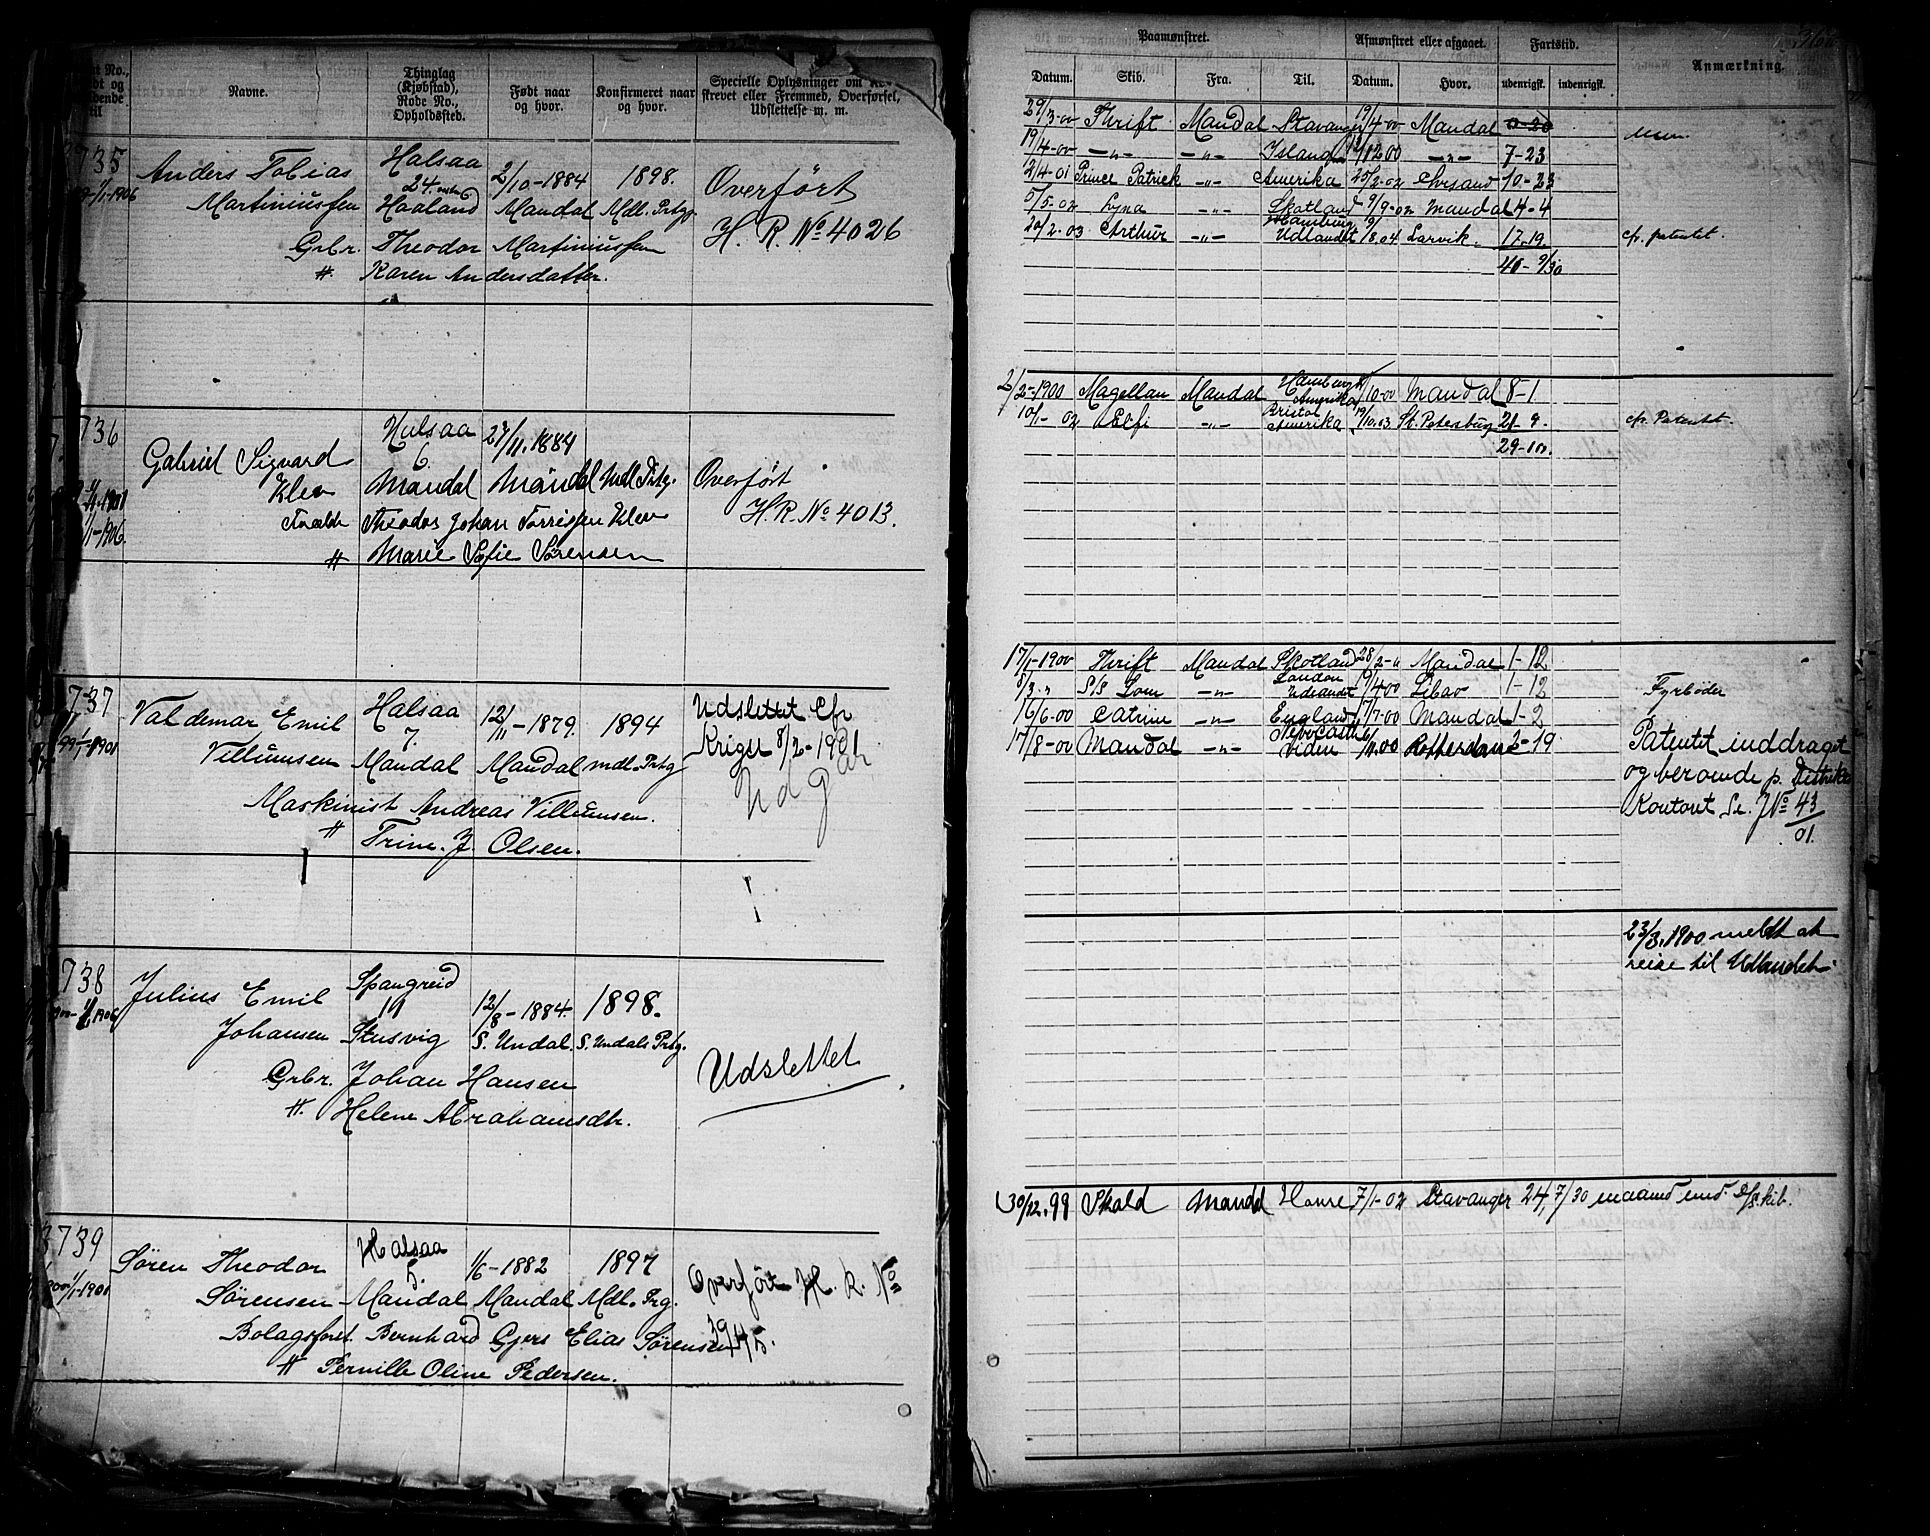 Navne.
Thinglag
(Kjøbstad),
Rode No.,
Opholdssted.
Født naar
og hvor.
Konfirmeret naar
og hvor.
Specielle Oplysninger om
skrevet eller Fremmed, Overførsel,
Udslettelse m. m.
735
Anders Tobias
Martiniussen
Halsaa
24
Haaland
2/10-1884
Mandal
1898.
Mdl. Prtgj.
Overført
H. R. No 4026
Grbr. Theodor Martiniussen
" Karen Andersdatter.
736
Gabriel Sigvard
Klev
Halsaa
6.
Mandal
27/11.1884
Mandal
Mdl Prtg.
Overført
H. R. No 4013.
Theodor Johan Torrissen Klev
" Marie Sofie Sørensen
737
Valdemar Emil
Villumsen
Halsaa
7.
Mandal
12/11-1879.
Mandal
1894
Mdl. Prtg
Udslettet Cfr
Kriget 8/2-1901
Udgår
Maskinist Andreas Villumsen.
" Trine. J. Olsen.
738
Julius Emil
Johansen
Spangreid
11
Stusvig
12/8-1884.
S. Undal.
1898.
S. Undals Prtg.
Udslettet
Grbr. Johan Hansen
" Helene Abrahamsdtr.
3739
Søren Theodor
Sørensen
Halsaa
5.
Mandal
1/6-1882
Mandal
1897
Mdl. Prg.
Overført H. R. No
3945.
Bernhard Gjers Elias Sørensen
" Pernille Oline Pedersen.
Paamønstret.
Afmønstret eller afgaaet.
Fartstid.
Anmærkning.
Datum. Skib. Fra. Til. Datum. Hvor. udenrigsk. indenrigsk.
29/3-00 Thrift Mandal Stavanger 19/4-00 Mandal 0-20
19/4-00 -"- -"- Island 1200 -"- 7-23
12/4-01 Prince Patrick -"- Amerika 25/2-02 Chrsand 10-23
5/5-02 Lyna -"- Skotland 9/9-02 Mandal 4-4
20/2-03 Arthur -"- Hamburg Udlandet 9/8.04 Larvik. 17-19. cfr. patentet.
40-9/30
2/2-1900 Magellan Mandal Hamburg Amerika 10-00 Mandal 8-1
10/1-02 -"- Bristol Amerika 19/10.03 St. Petersburg 21-9. cfr. Patentet.
29-10.
17/1-1900 Thrift Mandal Skotland 28/2-" Mandal 1-12
8/3-" S/S Lom -"- London Udlandet 19/4 00 Libav 1-12
16/6-00 Catrine -"- England 17/7-00 Mandal 1-2
17/8-00 Mandal -"- Newcastle viden 6/11.00 Rotterdam 2-19
Fyrbøder
Patentet inddraget
og beroende p. Distrikts
Kontoret Se. J No 43/01.
23/3.1900 meldt at
reise til Udlandet.
30/12.99 Skald Mandal Havre 7/1-02 Stavanger 24, 7/30 maaned